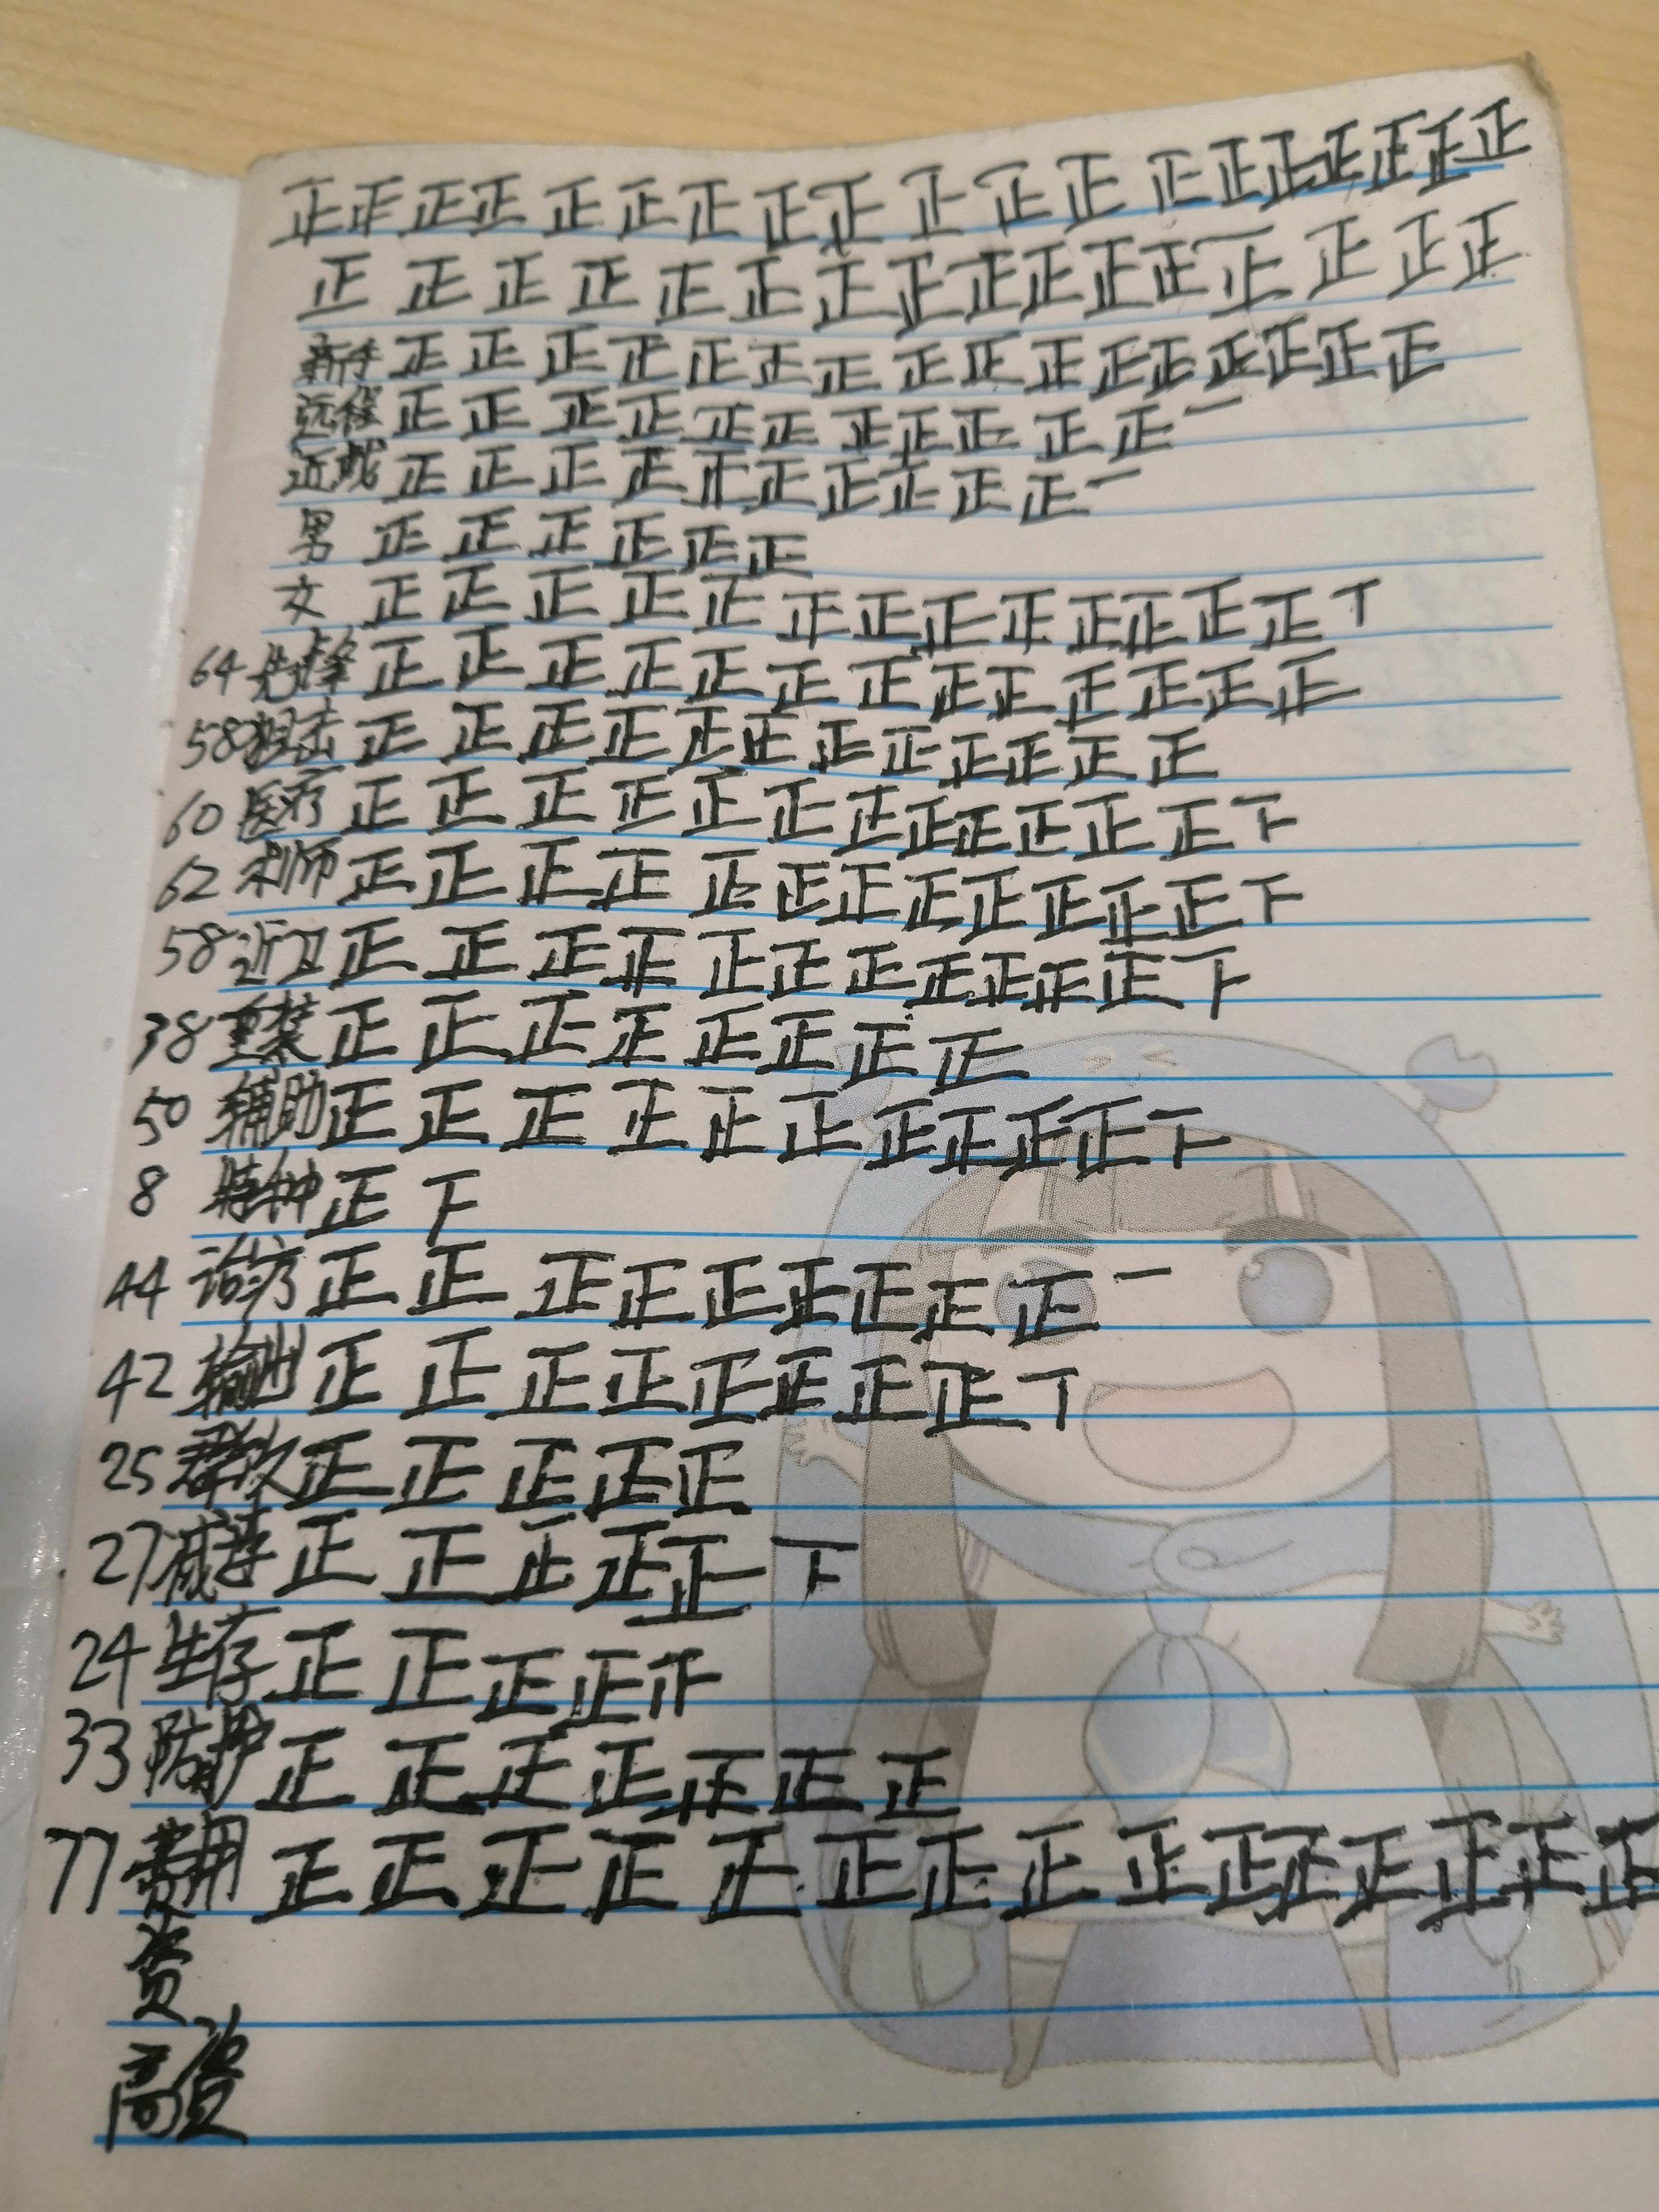 正正正正正正正正正正正正正正正正正正正
正正正正正正正正正正正正正正正正
新手正正正正正正正正正正正正正正正正
远程正正正正正正正正正正正一
近战正正正正正正正正正正一
男正正正正正正
女正正正正正正正正正正正正正丅
64先锋正正正正正正正正正正正正正
58狙击正正正正正正正正正正正正
60医疗正正正正正正正正正正正正下
62术师正正正正正正正正正正正正下
58近卫正正正正正正正正正正正下
38重装正正正正正正正正
50辅助正正正正正正正正正正下
8特种正下
44治疗正正正正正正正正正一
42输出正正正正正正正正丅
25群攻正正正正正
27减速正正正正正下
24生存正正正正正
33防护正正正正正正正
77费用正正正正正正正正正正正正正正正
资
高资